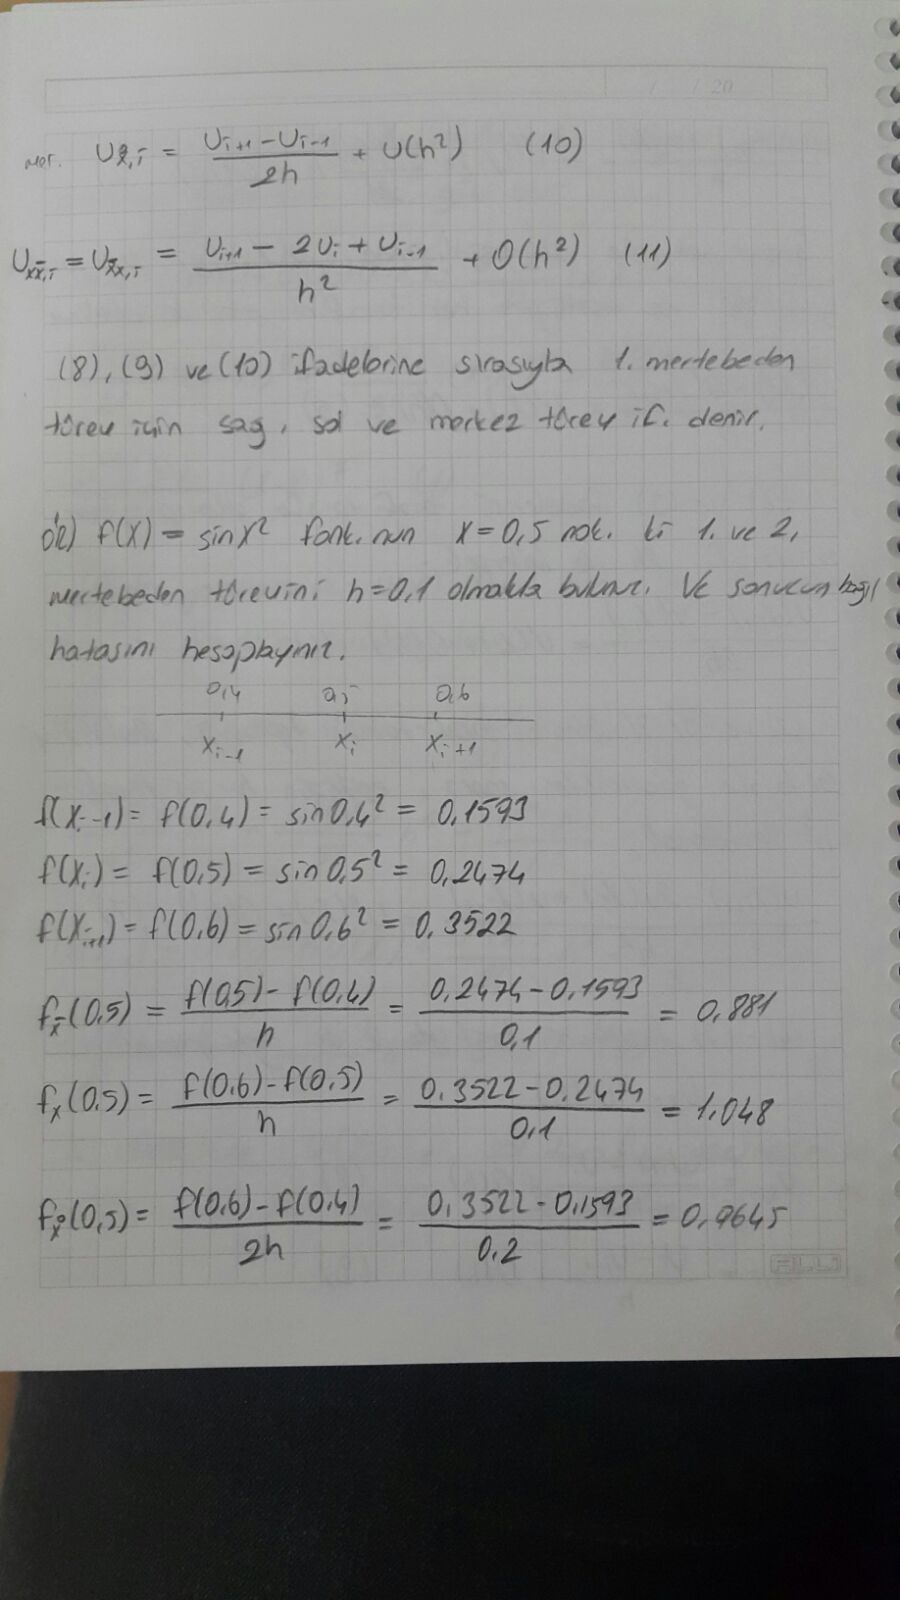 / / 20
mer. Ux̊,i = (Ui+1 - Ui-1) / 2h + O(h²) (10)
Uxx̄,i = Ux̄x,i = (Ui+1 - 2Ui + Ui-1) / h² + O(h²) (11)
(8), (9) ve (10) ifadelerine sırasıyla 1. mertebeden
türev için sağ, sol ve merkez türev if. denir.
ör) f(x) = sinx² fonk.nun x=0,5 nok. ki 1. ve 2.
mertebeden türevini h=0,1 olmakla bulunuz. Ve sonucun bağıl
hatasını hesaplayınız.
0,4 0,5 0,6
xi-1 xi xi+1
f(xi-1) = f(0,4) = sin0,4² = 0,1593
f(xi) = f(0,5) = sin0,5² = 0,2474
f(xi+1) = f(0,6) = sin0,6² = 0,3522
fx̄(0,5) = (f(0,5) - f(0,4)) / h = (0,2474 - 0,1593) / 0,1 = 0,881
fx(0,5) = (f(0,6) - f(0,5)) / h = (0,3522 - 0,2474) / 0,1 = 1,048
fx̊(0,5) = (f(0,6) - f(0,4)) / 2h = (0,3522 - 0,1593) / 0,2 = 0,9645